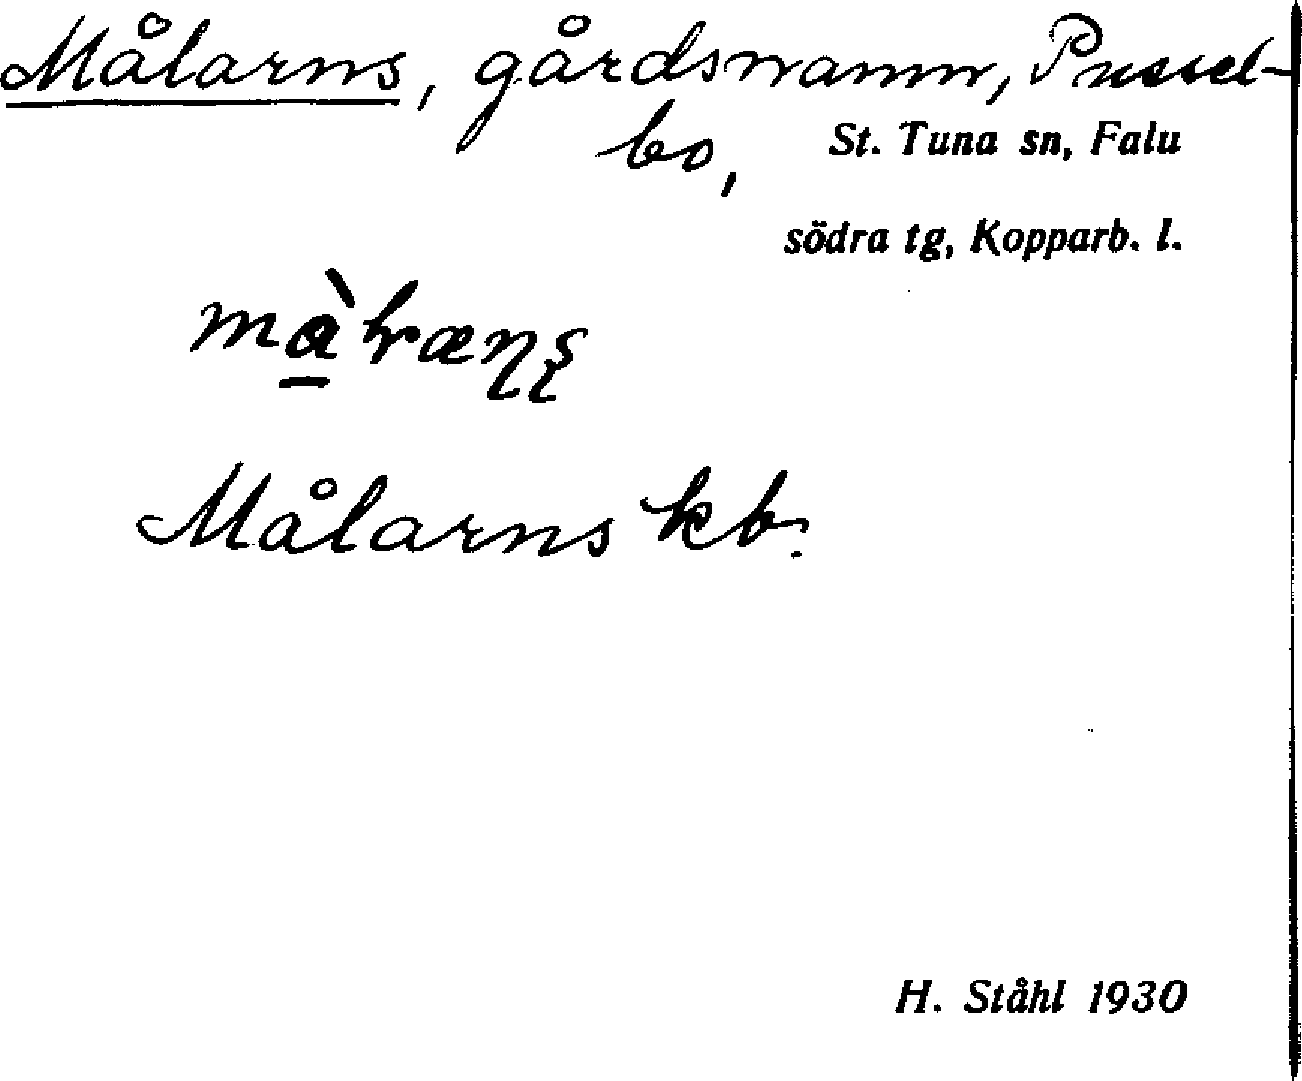 Målarns, gårdsnamn, Pussel-
bo, St. Tuna sn, Falu
södra tg, Kopparb. l.
Målarns kb.
H. Ståhl 1930